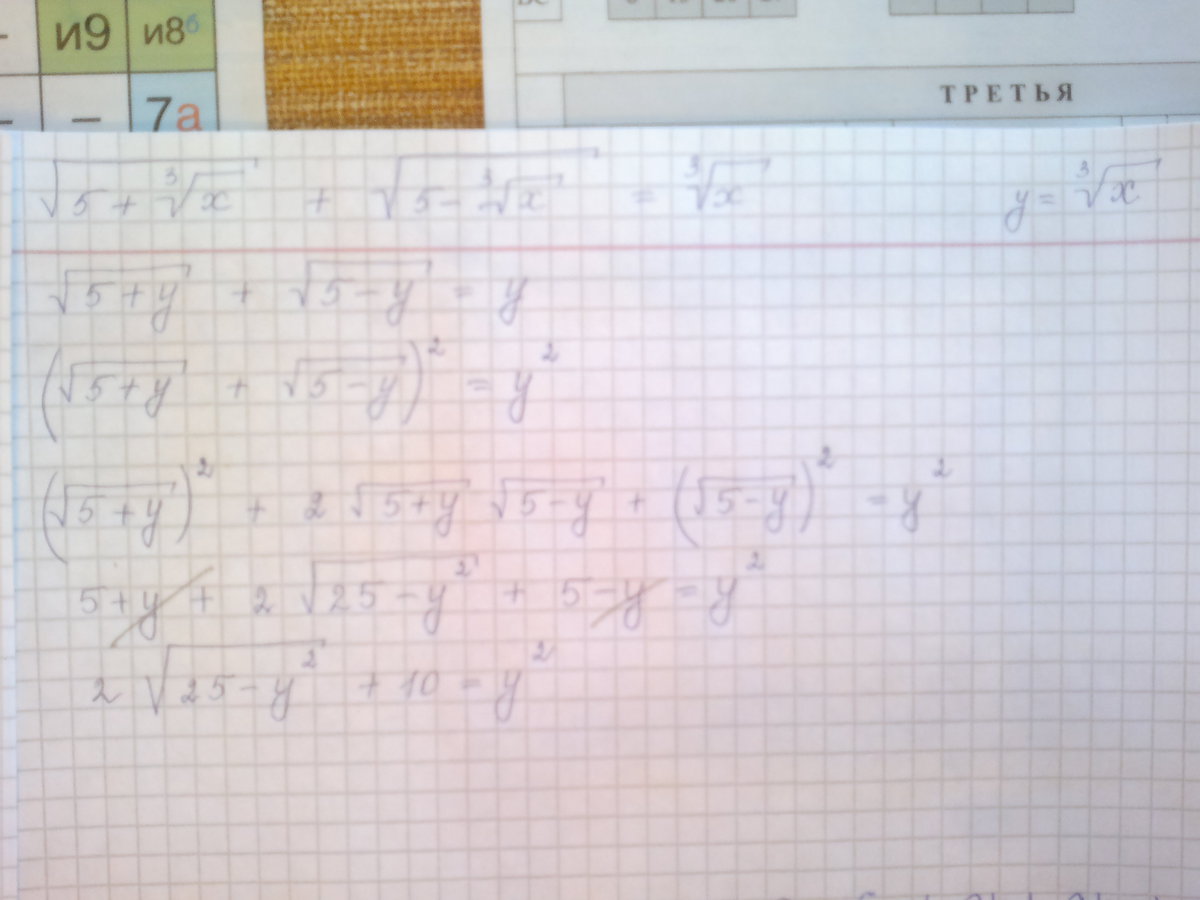 и9 и8б
– 7а
ТРЕТЬЯ
√(5 + ∛x) + √(5 - ∛x) = ∛x y = ∛x
√(5 + y) + √(5 - y) = y
(√(5 + y) + √(5 - y))² = y²
(√(5 + y))² + 2 √(5 + y) √(5 - y) + (√(5 - y))² = y²
5 + y + 2 √(25 - y²) + 5 - y = y²
2 √(25 - y²) + 10 = y²